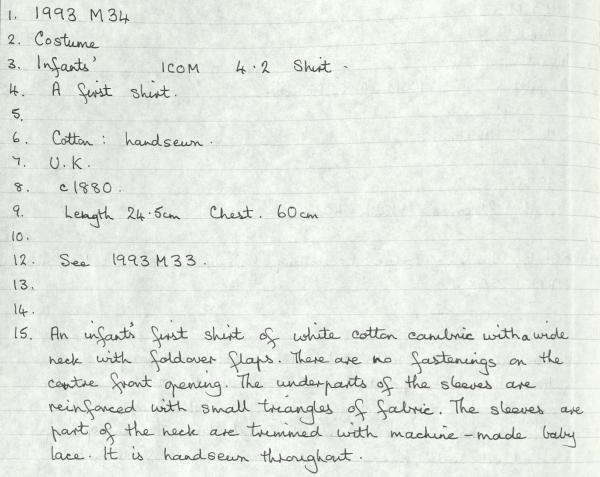 1. 1993 M34
2. Costume
3. Infants' ICOM 4.2 Shirt.
4. A first shirt.
5.
6. Cotton : handsewn.
7. U.K.
8. c1880.
9. Length 24.5cm Chest. 60cm
10.
12. See 1993 M33.
13.
14.
15. An infant's first shirt of white cotton cambric with a wide
neck with foldover flaps. There are no fastenings on the
centre front opening. The underparts of the sleeves are
reinforced with small triangles of fabric. The sleeves are
part of the neck are trimmed with machine-made baby
lace. It is handsewn throughout.